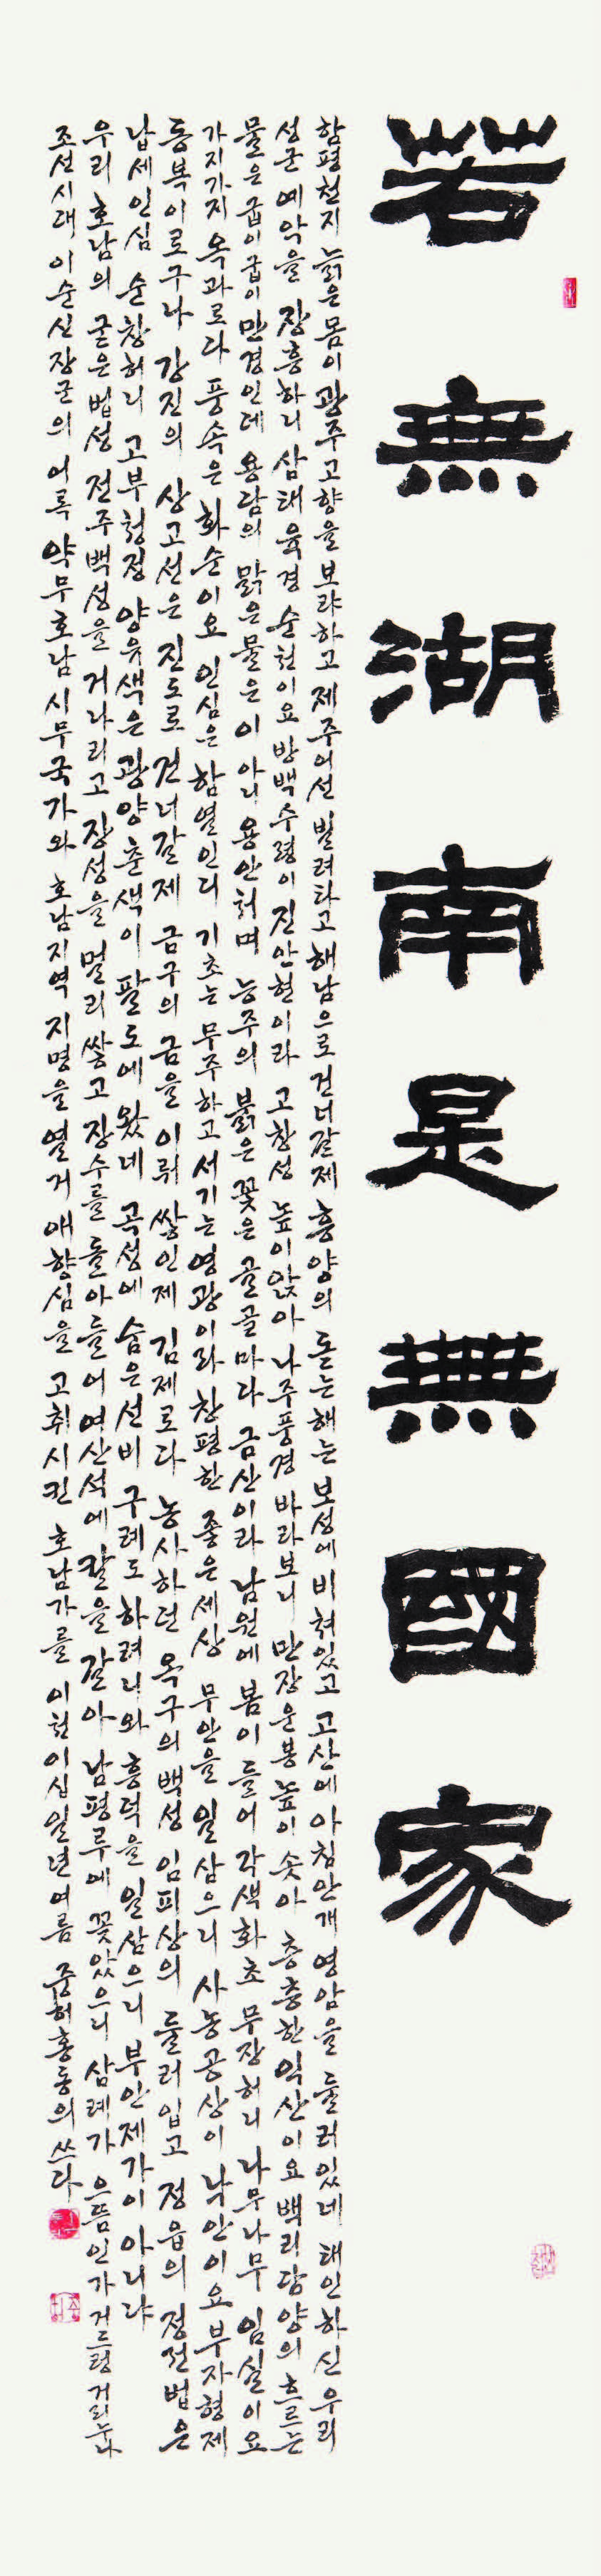 若無湖南是無國家
함평천지 늙은몸이 광주고향을 보랴하고 제주어선 빌려타고 해남으로 건너갈제 흥양의 돋는해는 보성에 비쳐있고 고산에 아침안개 영암을 둘러있네 태인하신 우리
성군 예악을 장흥하니 삼태육경 순천이요 방백수령이 진안현이라 고창성 높이앉아 나주풍경 바라보니 만장운봉 높이 솟아 층층한 익산이요 백리담양의 흐르는
물은 굽이굽이 만경인데 용담의 맑은물은 이 아니 용안처며 능주의 붉은 꽃은 골골마다 금산이라 남원에 봄이 들어 각색화초 무장허니 나무나무 임실이요
가지가지 옥과로다 풍속은 화순이요 인심은 함열인디 기초는 무주하고 서기는 영광이라 창평한 좋은세상 무안을 일삼으니 사농공상이 낙안이요 부자형제
동복이로구나 강진의 상고선은 진도로 건너갈제 금구의 금을 이뤄 쌓인제 김제로다 농사하던 옥구의백성 임피상의 둘러입고 정읍의 정전법은
납세인심 순창허니 고부청정 양유색은 광양춘색이 팔도에 왔네 곡성에 숨은선비 구례도 하려니와 흥덕을 일삼으니 부안제가이 아니냐
우리 호남의 굳은법성 전주백성을 거나리고 장성을 멀리 쌓고 장수를 돌아들어 여산석에 칼을 갈아 남평루에 꽂았으니 삼례가 으뜸인가 거드렁거리누나
조선시대 이순신장군의 어록 약무호남 시무국가와 호남지역 지명을 열거 애향심을 고취시킨 호남가를 이천이십일년여름 중허홍동의 쓰다